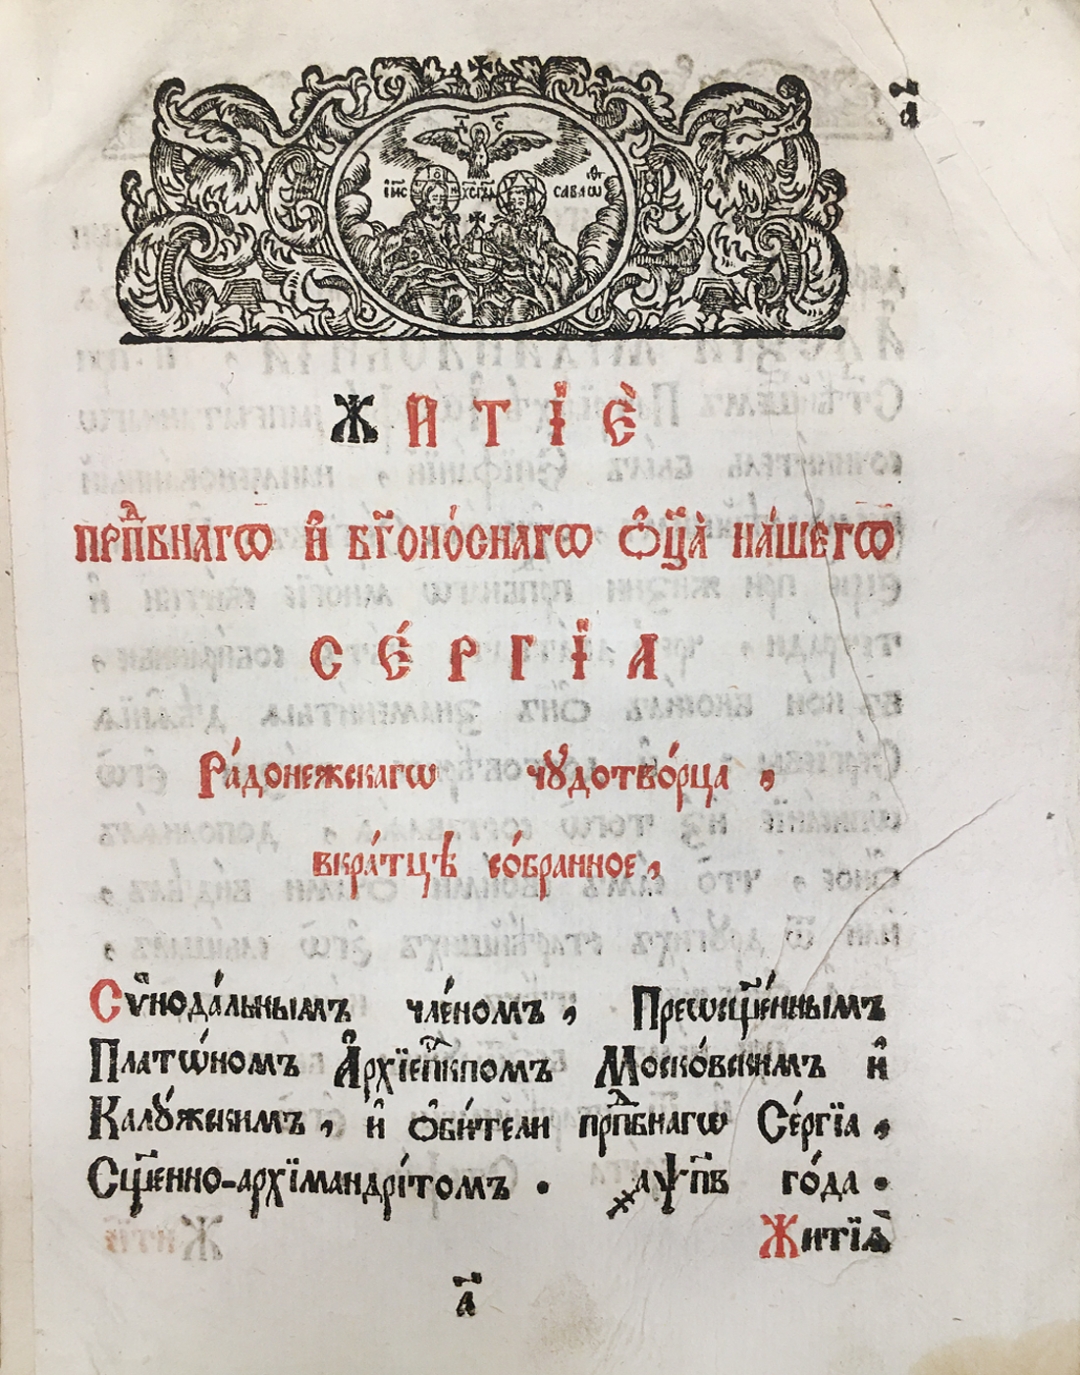 а҃
І҃С
ІИ҃С ХС҃ГДЬ САВАѠ
ЖИТІЀ
прпⷣбнагѡ и҆ бг҃оно́снагѡ ѻ҆ц҃а̀ на́шегѡ
СЕ́РГІѦ
Ра́донежскагѡ чꙋдотво́рца ,
вкра́тцѣ со́бранное ,
Сѵ̑нода́льнымъ чле́номъ , Преѡсщ҃е́ннымъ
Платѡ́номъ А҆рхїепⷭ҇кпомъ Моско́вскимъ и҆
Калꙋ́жскимъ , и҆ ѻ҆би́тели прпⷣбнагѡ Се́ргїа ,
Сщ҃е́нно-архїмандрі́томъ . ҂аѱп҃в го́да .
Житїѧ̀
а҃